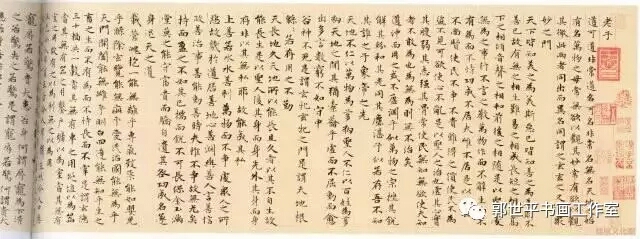 老子
道可道非常道名可名非常名無名天地之始
有名萬物之母常無欲以觀其妙常有欲以觀
其徼此兩者同出而異名同謂之玄玄之又玄眾
妙之門
天下皆知美之為美斯惡已皆知善之為善斯不
善已故有無之相生難易之相成長短之相形高
下之相傾音聲之相和前後之相隨是以聖人處
無為之事行不言之教萬物作而不辭生而不
有為而不恃功成不居夫惟不居是以不去
不尚賢使民不爭不貴難得之貨使民不為
盜不見可欲使心不亂是以聖人之治虛其心實
其腹弱其志強其骨常使民無知無欲使夫知
者不敢為也為無為則無不治矣
道沖而用之或不盈淵乎似萬物之宗挫其銳
解其紛和其光同其塵湛乎似若存吾不知
其誰之子象帝之先
天地不仁以萬物為芻狗聖人不仁以百姓為芻
狗天地之間其猶橐籥乎虛而不屈動而愈
出多言數窮不如守中
谷神不死是謂玄牝玄牝之門是謂天地根
綿綿若存用之不勤
天長地久天地所以能長且久者以其不自生故
能長生是以聖人後其身而身先外其身而身
存非以其無私邪故能成其私
上善若水水善利萬物而不爭處眾人之所
惡故幾於道居善地心善淵與善人言善信
政善治事善能動善時夫惟不爭故無尤矣
持而盈之不如其已揣而銳之不可長保金玉滿
堂莫之能守富貴而驕自遺其咎功成名遂
身退天之道
載營魄抱一能無離乎專氣致柔能如嬰兒
乎滌除玄覽能無疵乎愛民治國能無為乎
天門開闔能無雌乎明白四達能無知乎生之
畜之生而不有為而不恃長而不宰是謂玄德
三十輻共一轂當其無有車之用埏埴以為器
當其無有器之用鑿戶牖以為室當其無有
室之用故有之以為利無之以為用
寵辱若驚貴大患若身何謂寵辱寵為下得
之若驚失之若驚是謂寵辱若驚何謂貴大
郭世平书画工作室